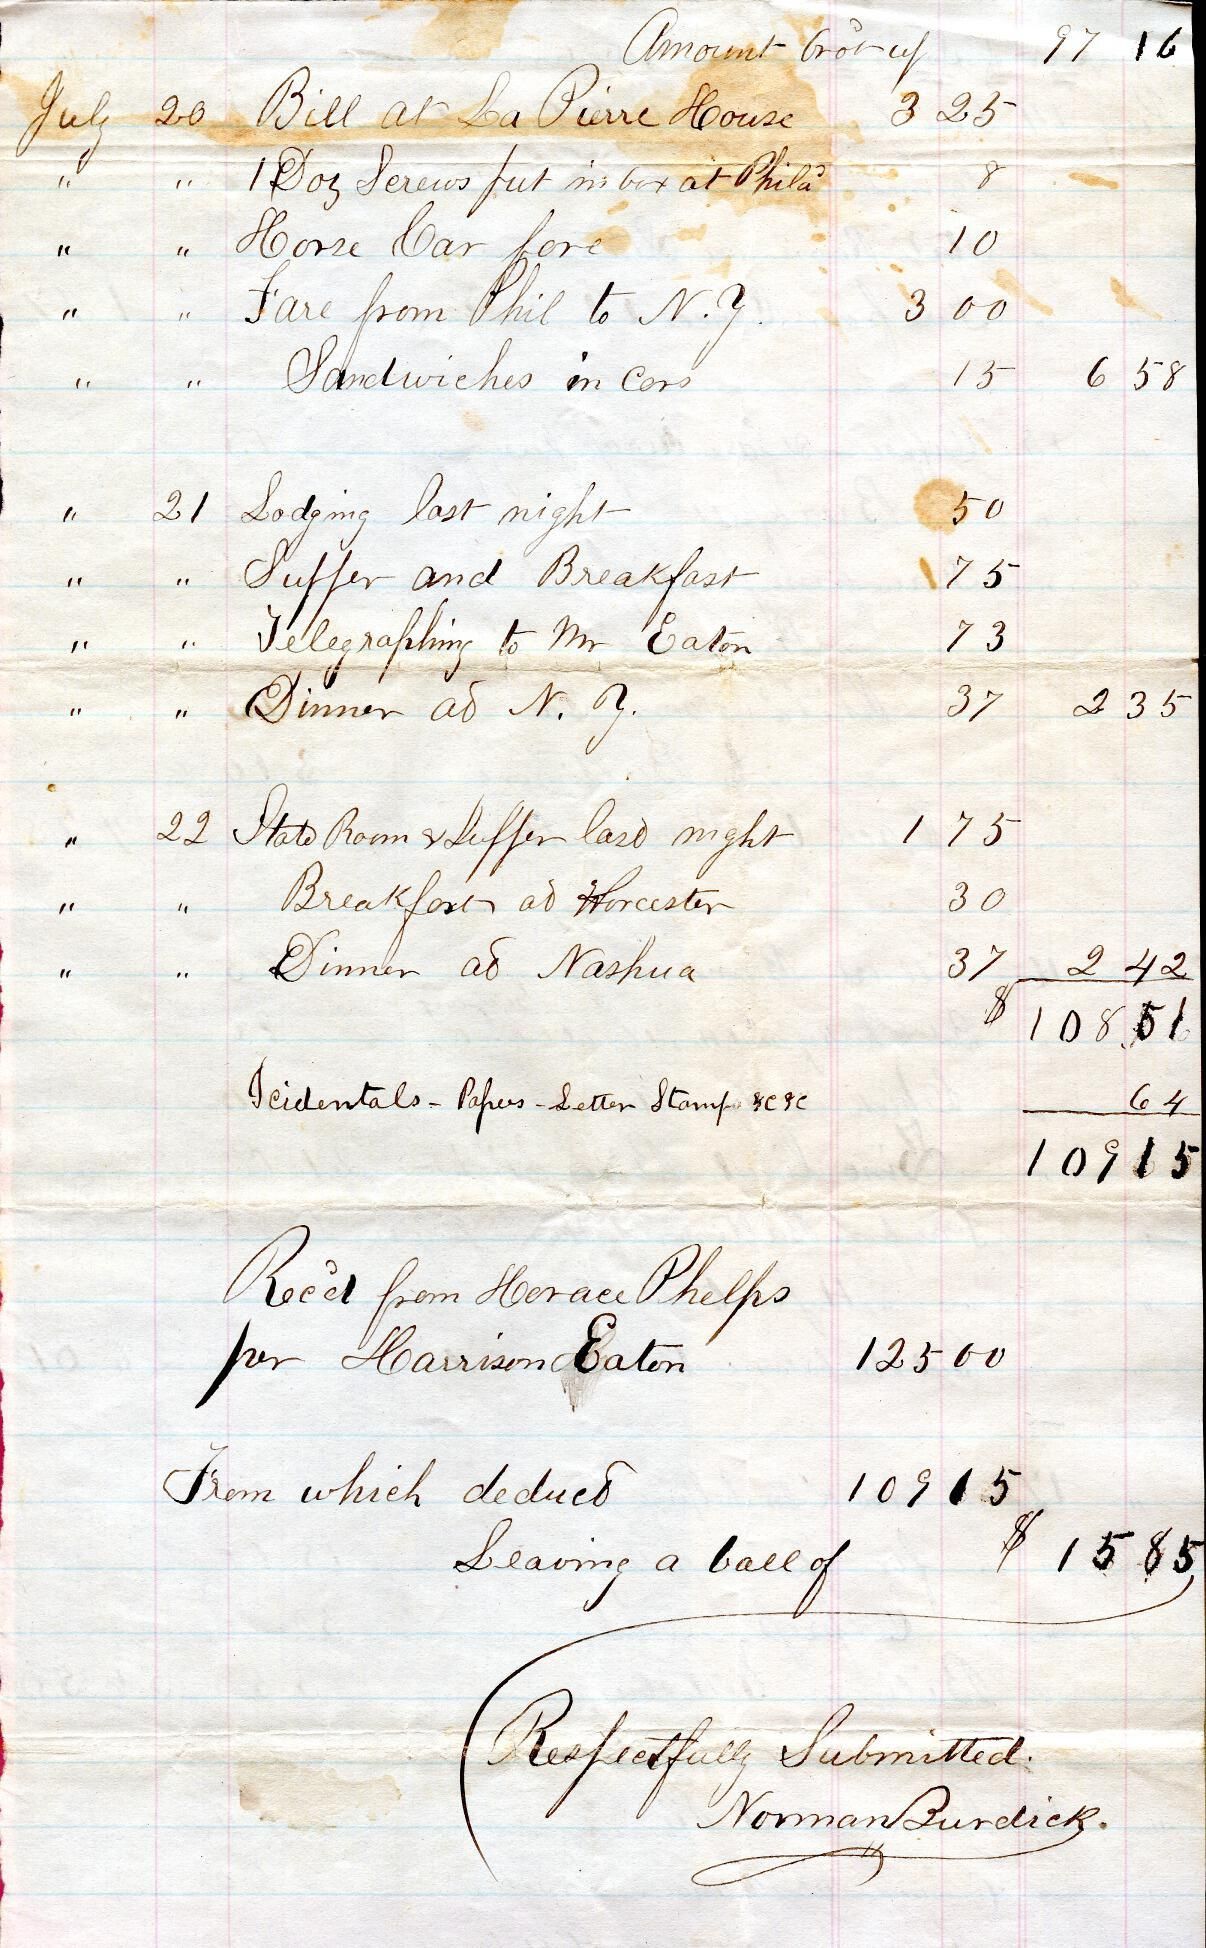 Amount bro't up 97 16
July 20 Bill at La Pierre House 3 25
" " 1 Doz Screws put in box at Phila 8
" " Horse Car fare 10
" " Fare from Phil to N. Y. 3 00
" " Sandwiches in Cars 15 6 58
" 21 Lodging last night 50
" " Supper and Breakfast 75
" " Telegraphing to Mr Eaton 73
" " Dinner at N. Y. 37 2 35
" 22 State Room & Supper last night 1 75
" " Breakfast at Worcester 30
" " Dinner at Nashua 37 2 42
$ 108.51
Icidentals - Papers - Letter Stamp &c &c 64
109 15
Rec'd from Horace Phelps
per Harrison Eaton 125 00
From which deduct 109 15
Leaving a ball of $ 15 85
Respectfully Submitted.
Norman Burdick.